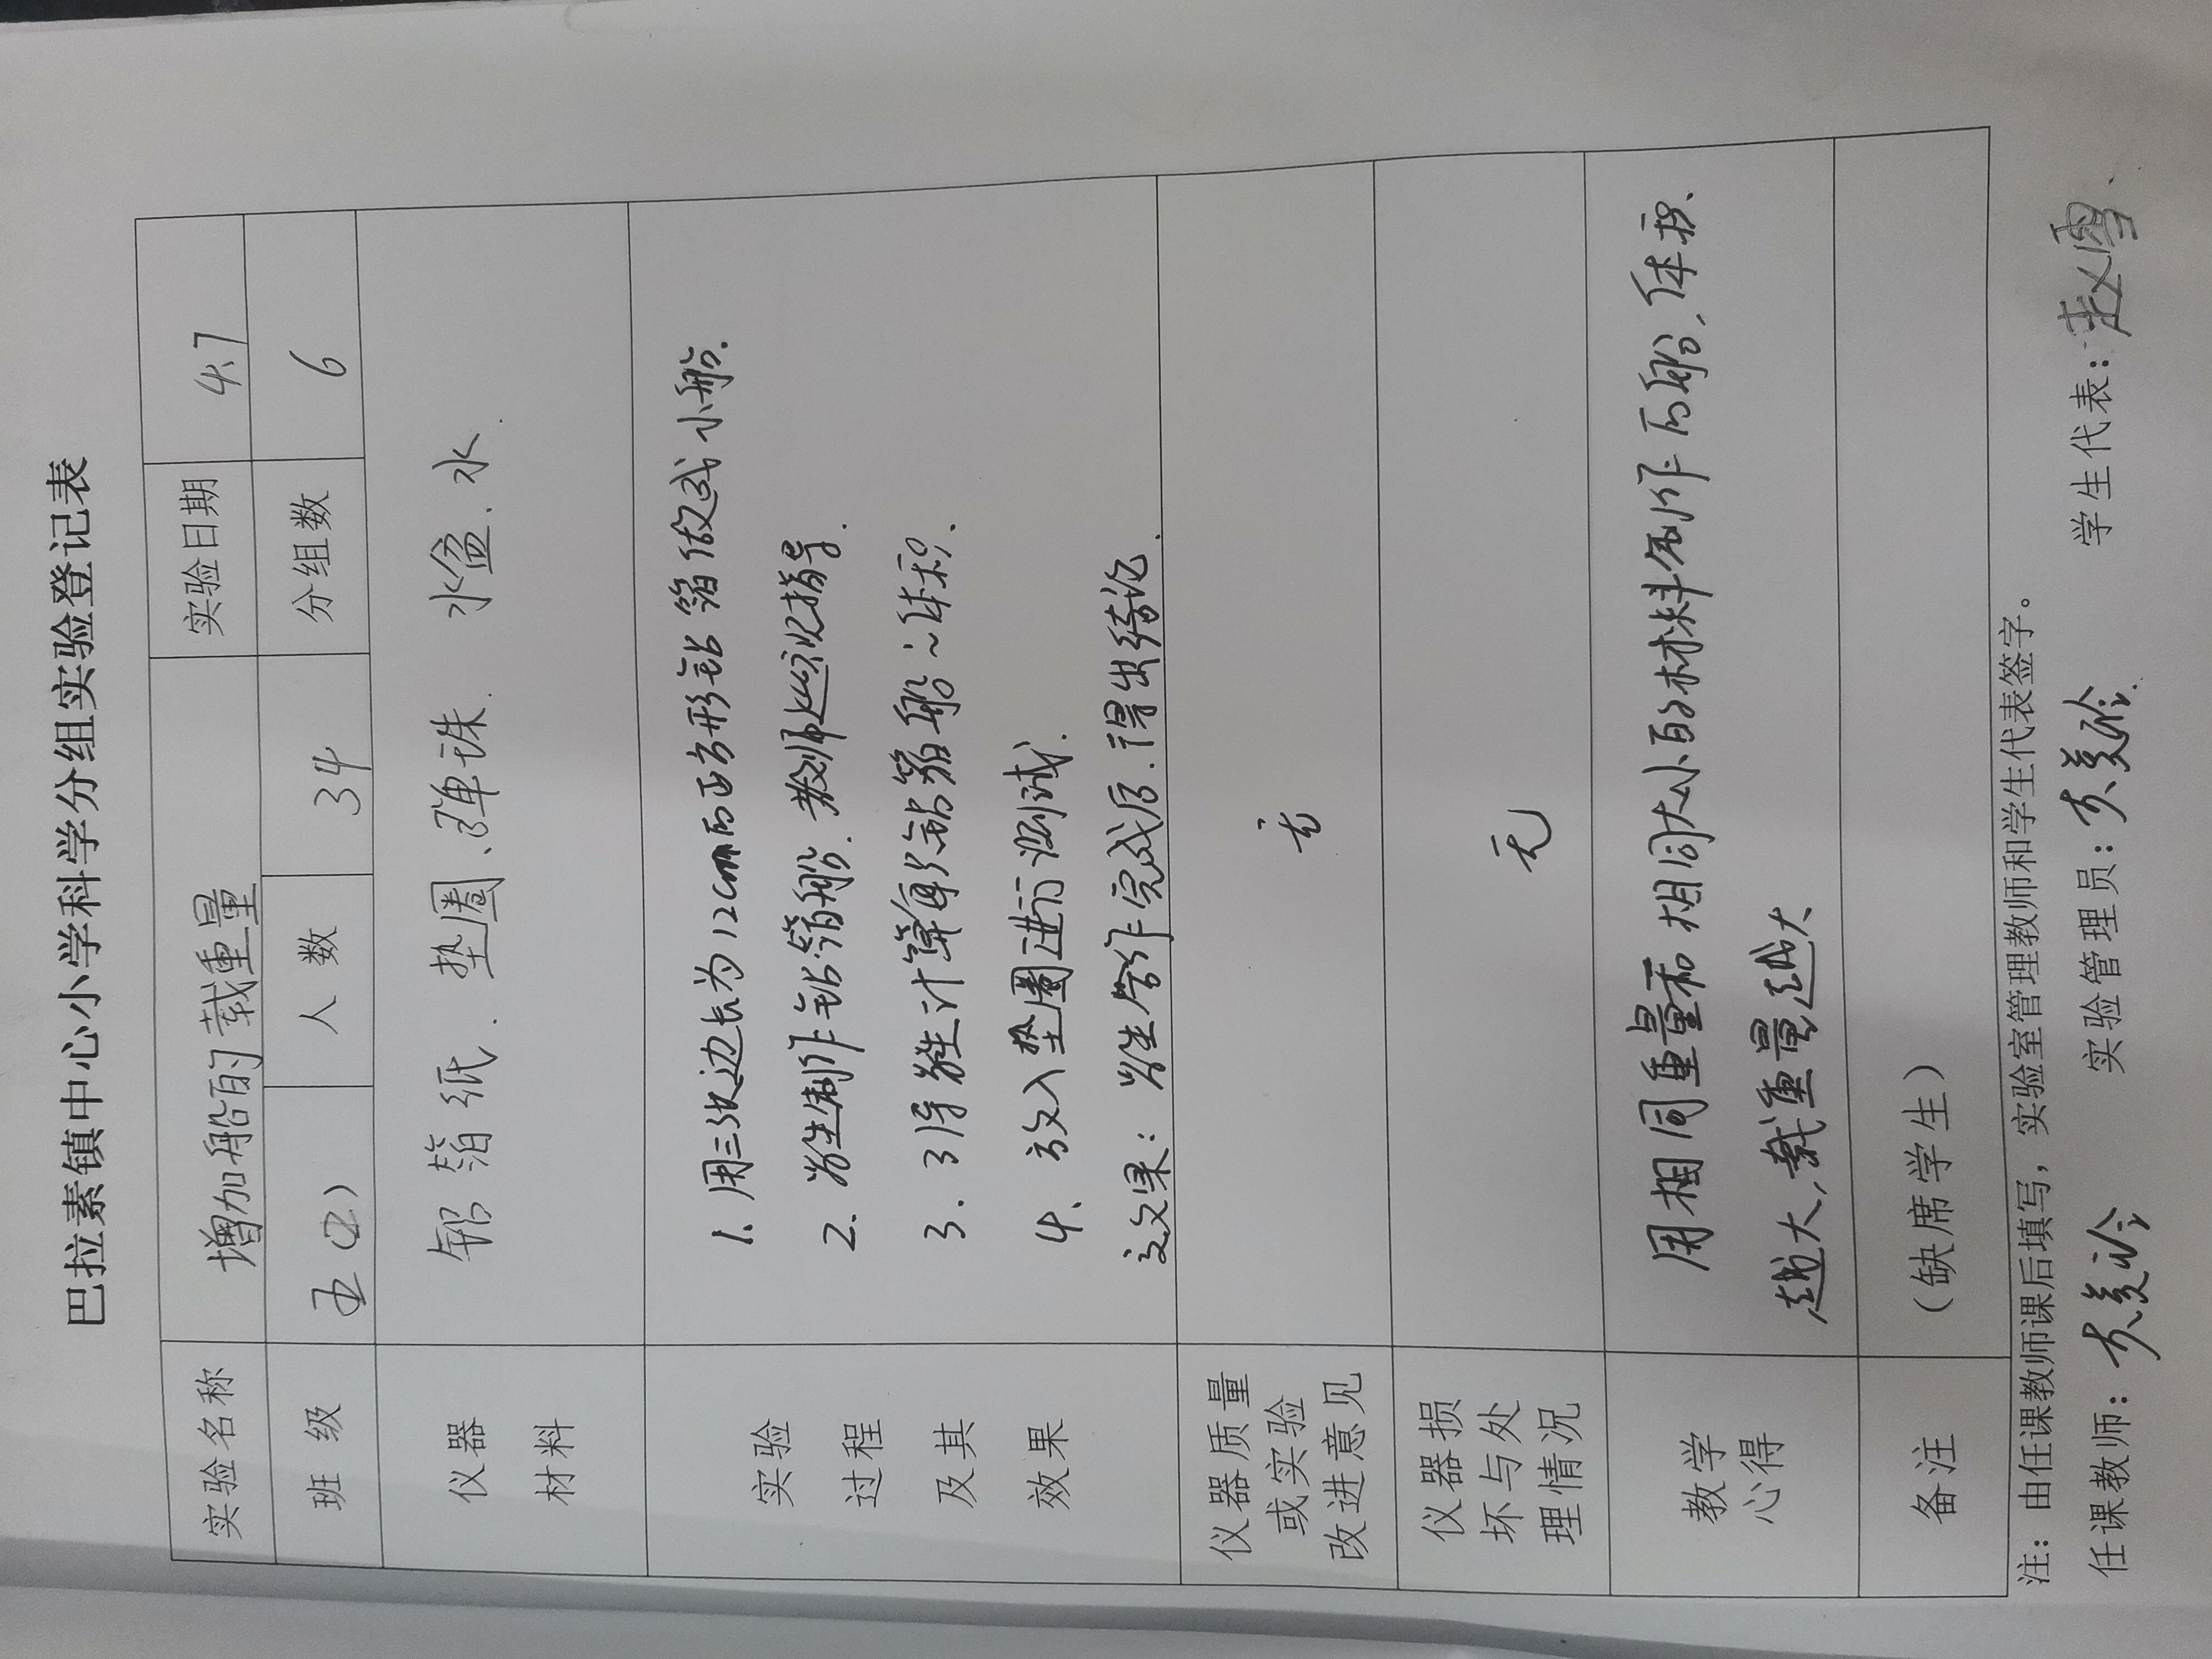 巴拉素镇中心小学科学分组实验登记表
实验名称 增加船的载重量 实验日期 4.7
班 级 五(2) 人 数 34 分组数 6
仪器 铝箔纸、垫圈、弹珠、水盆、水.
材料
实验 1. 用三张边长为12cm的正方形铝箔做成小船.
过程 2. 学生制作铝箔船. 教师巡视指导.
及其 3. 引导学生计算每只铝箔船~体积.
4. 放入垫圈进行测试.
效果 效果: 学生合作完成后.得出结论.
仪器质量
或实验 无
改进意见
仪器损
坏与处 无
理情况
教学 用相同重量和相同大小的材料制作的船,体积
心得 越大,载重量越大
备注 (缺席学生)
注:由任课教师课后填写,实验室管理教师和学生代表签字。
任课教师: 实验管理员: 学生代表:赵雪